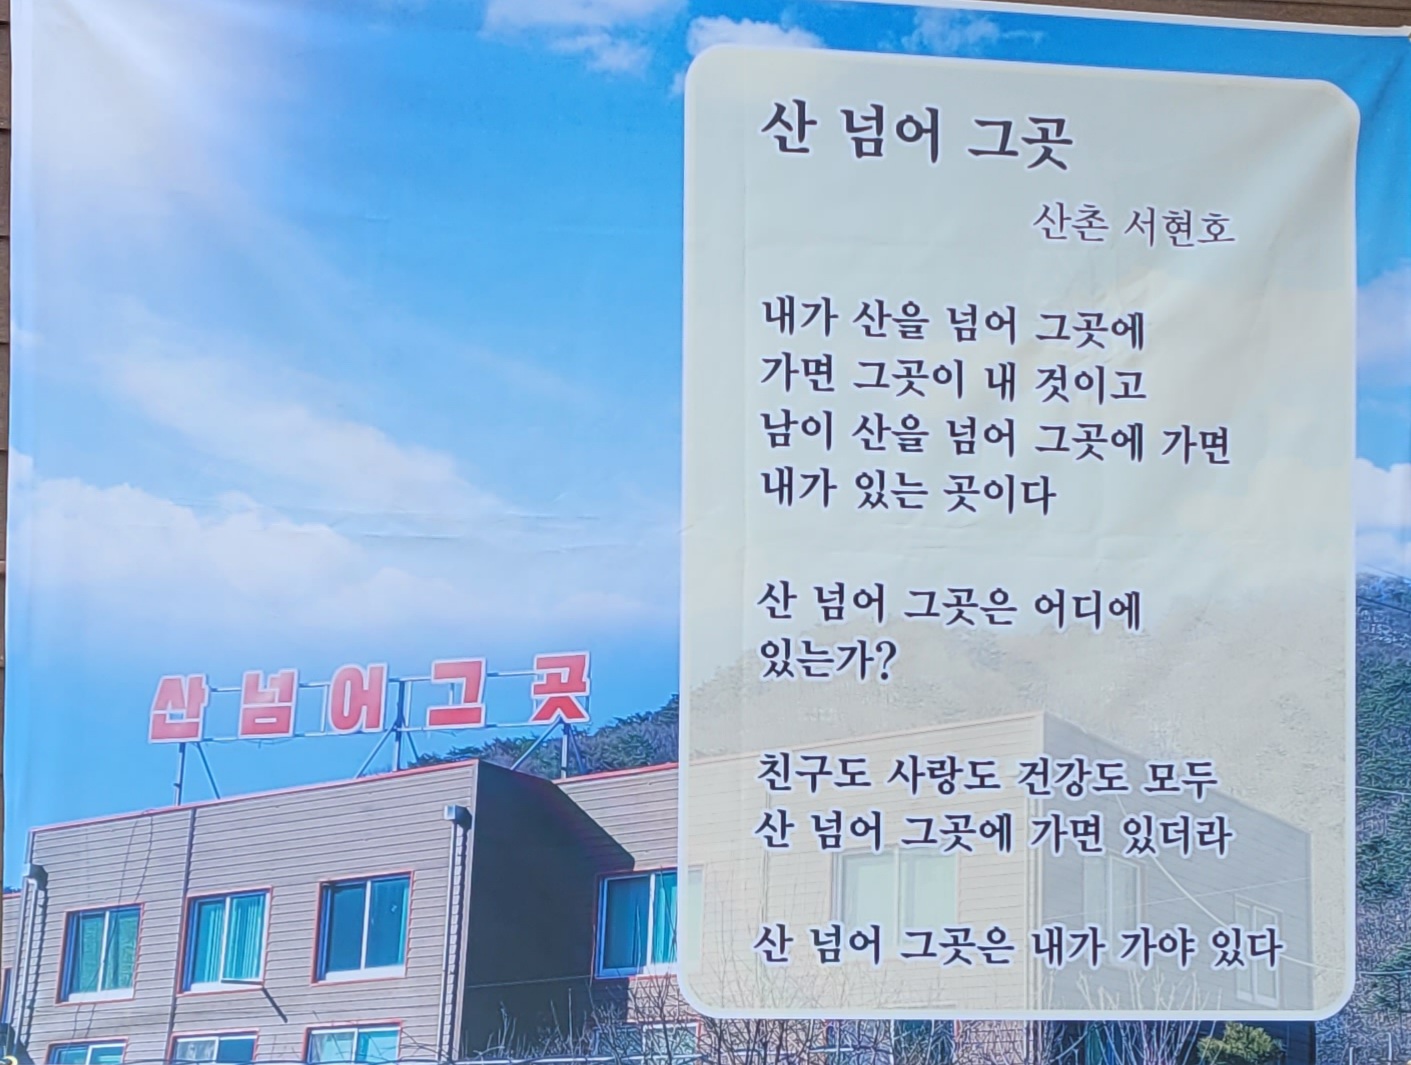 산 넘어 그곳
산촌 서현호
내가 산을 넘어 그곳에
가면 그곳이 내 것이고
남이 산을 넘어 그곳에 가면
내가 있는 곳이다
산 넘어 그곳은 어디에
있는가?
친구도 사랑도 건강도 모두
산 넘어 그곳에 가면 있더라
산 넘어 그곳은 내가 가야 있다
산넘어그곳